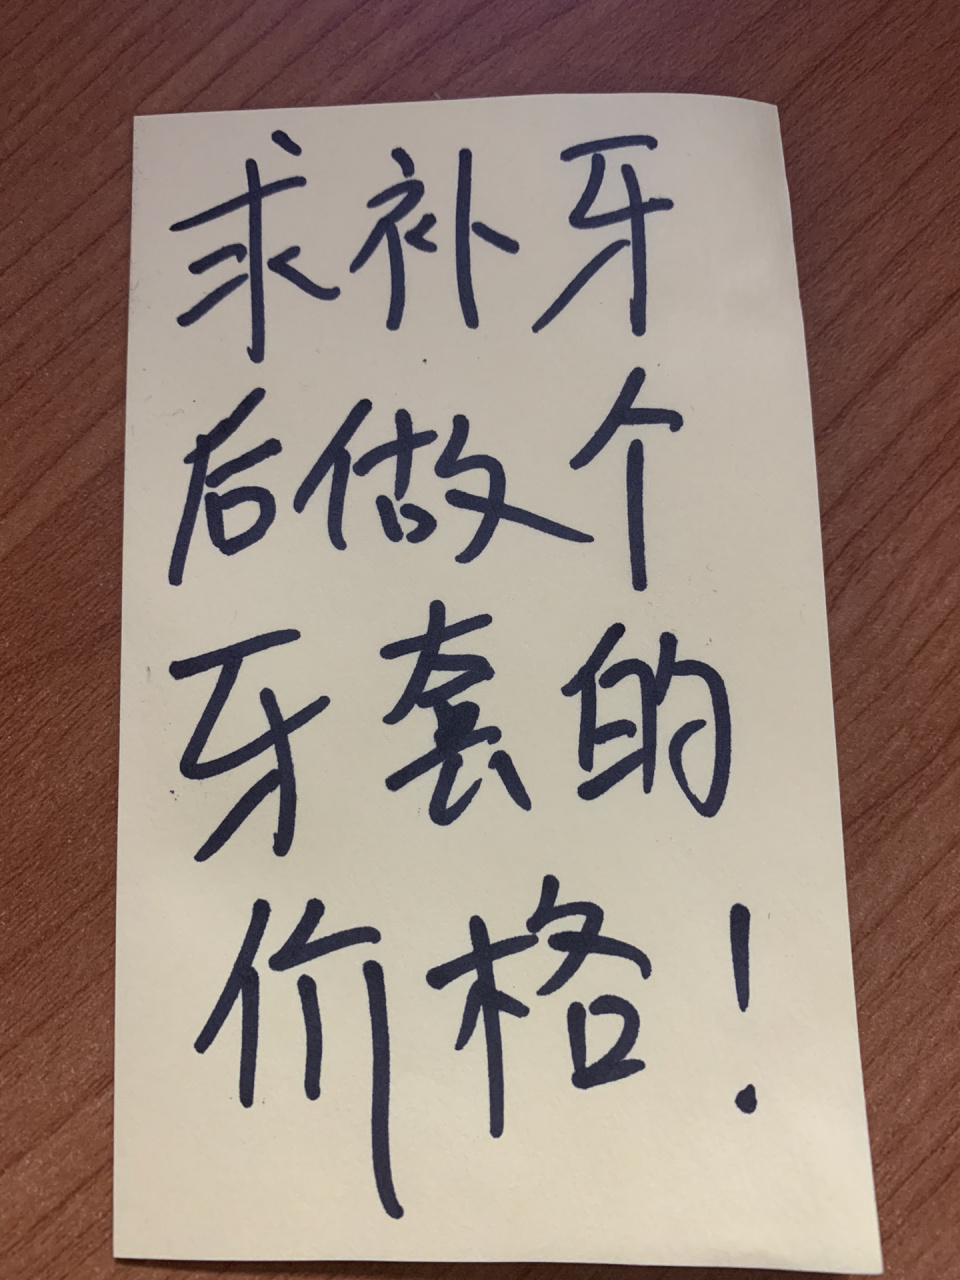 求补牙
后做个
牙套的
价格!